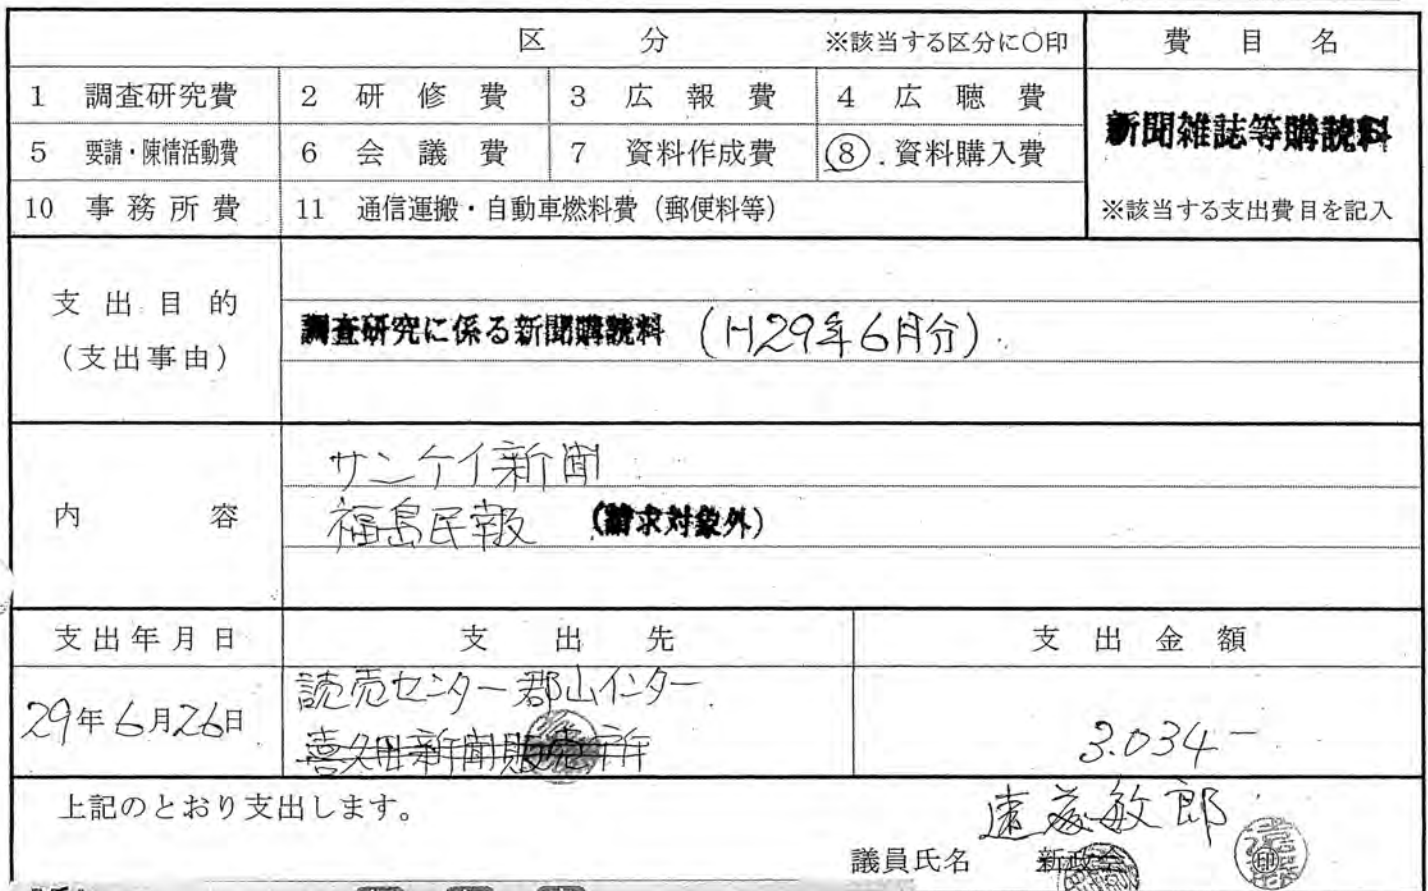 区 分 ※該当する区分に○印 費 目 名
1 調査研究費 2 研 修 費 3 広 報 費 4 広 聴 費
新聞雑誌等購読料
5 要請・陳情活動費 6 会 議 費 7 資料作成費 8.資料購入費
10 事 務 所 費 11 通信運搬・自動車燃料費(郵便料等) ※該当する支出費目を記入
支 出 目 的
(支出事由)
調査研究に係る新聞購読料 (H29年6月分).
サンケイ新聞
内 容
福島民報 (請求対象外)
支出年月日 支 出 先 支 出 金 額
読売センター郡山インター
29年6月26日 3.034-
喜久田新聞販売所
上記のとおり支出します。
遠藤敏郎
議員氏名 新政会
印